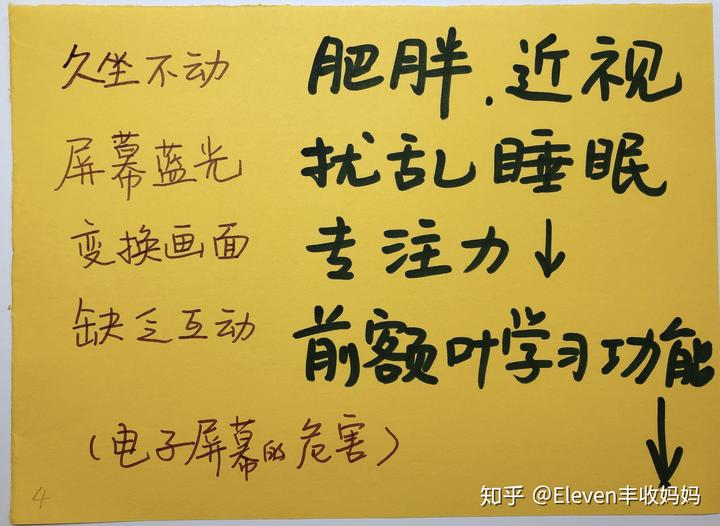 久坐不动 肥胖.近视
屏幕蓝光 扰乱睡眠
变换画面 专注力↓
缺乏互动 前额叶学习功能↓
(电子屏幕的危害)
4
知乎 @Eleven丰收妈妈